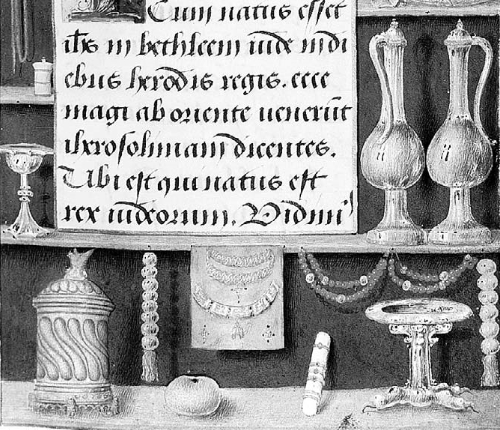 Cum natus esset
ihs in bethleem iude in di
ebus herodis regis. ecce
magi ab oriente uenerūt
iherosolimam dicentes.
Ubi est qui natus est
rex iudeorum. Vidim'